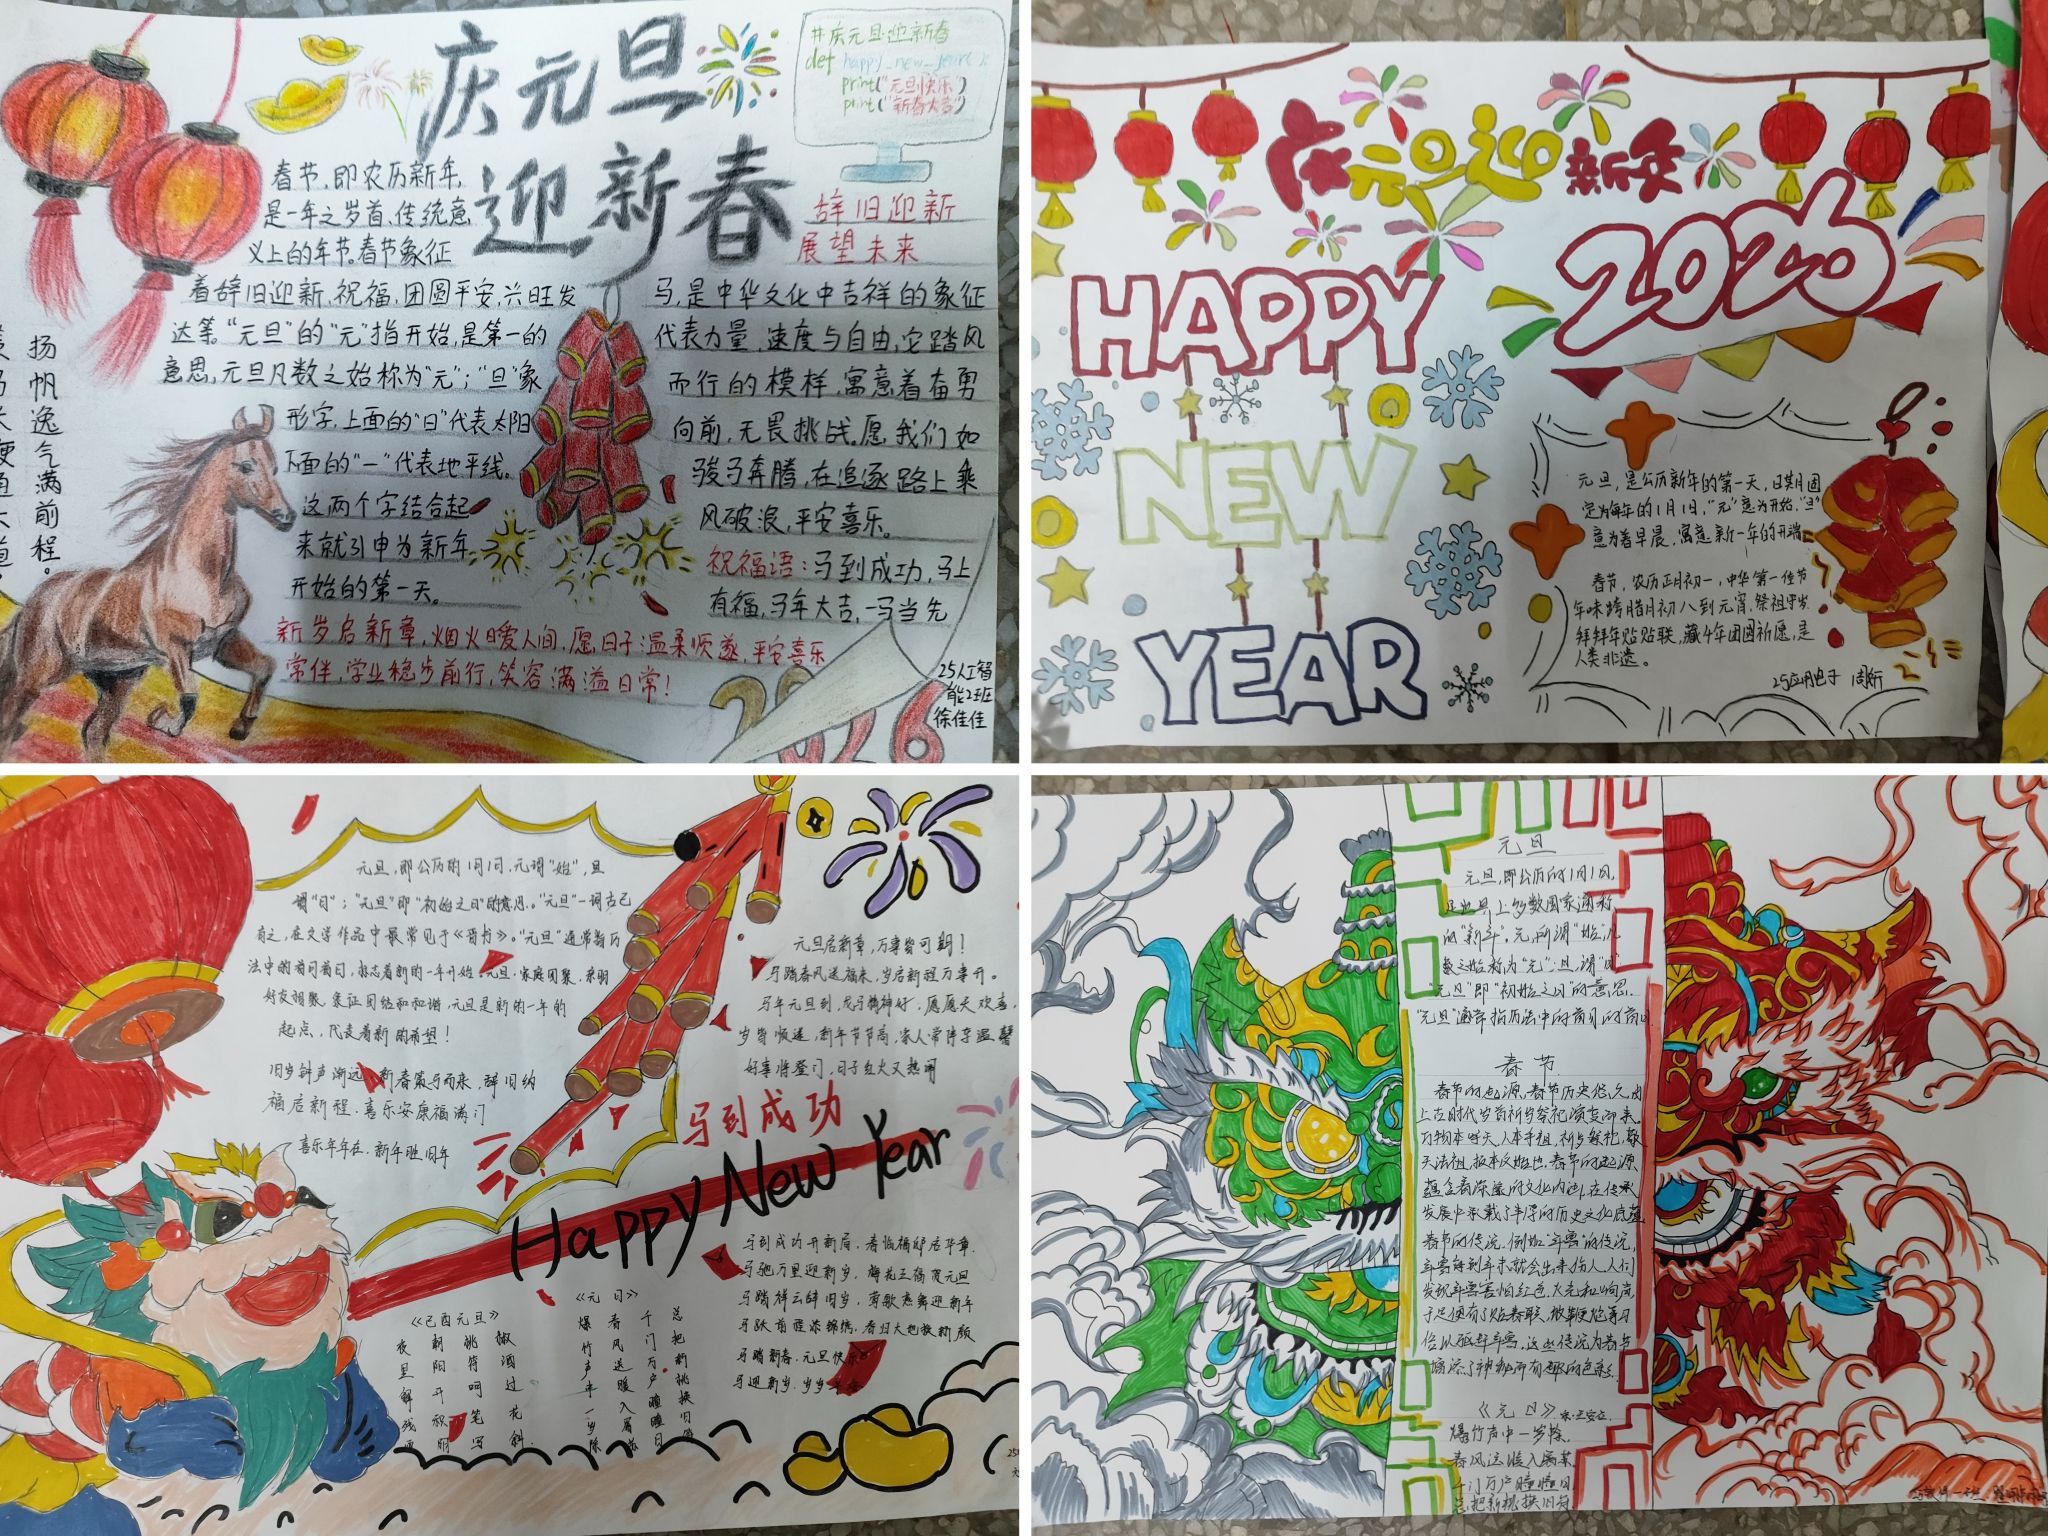 庆元旦
迎新春
#庆元旦·迎新春
def happy_new_year():
print("元旦快乐")
print("新春大吉")
春节,即农历新年,
是一年之岁首、传统意
义上的年节。春节象征
着辞旧迎新、祝福、团圆平安、兴旺发
达等。"元旦"的"元"指开始,是第一的
意思,元旦凡数之始称为"元";"旦"象
形字,上面的"日"代表太阳
下面的"一"代表地平线。
这两个字结合起
来就引申为新年
开始的第一天。
辞旧迎新
展望未来
马,是中华文化中吉祥的象征
代表力量,速度与自由,它踏风
而行的模样,寓意着奋勇
向前,无畏挑战,愿我们如
骏马奔腾,在追逐路上乘
风破浪,平安喜乐。
祝福语:马到成功,马上
有福,马年大吉,一马当先
扬帆逸气满前程。
新岁启新章,烟火暖人间,愿日子温柔顺遂,平安喜乐
常伴,学业稳步前行,笑容满溢日常!
2026
25人工智
能2班
徐佳佳
庆元旦迎新年
HAPPY
2026
NEW
YEAR
元旦,是公历新年的第一天,日期固
定为每年的1月1日,"元"意为开始,"旦"
意为着早晨,寓意新一年的开端
春节,农历正月初一,中华第一佳节
年味跨腊月初八到元宵,祭祖守岁
拜拜年贴贴联,藏4年团圆祈愿,是
人类非遗。
25应用电子
元旦,即公历的1月1日,元谓"始",旦
谓"日";"元旦"即"初始之日"的意思。"元旦"一词古已
有之,在文学作品中最常见于《晋书》。"元旦"通常指历
法中的首月首日,标志着新的一年开始。元旦,家庭团聚,亲朋
好友相聚,象征团结和和谐,元旦是新的一年的
起点,代表着新的希望!
旧岁钟声渐远,新春策马而来,辞旧纳
福启新程,喜乐安康福满门
喜乐年年在,新年胜旧年
元旦启新章,万事皆可期!
马踏春风送福来,岁启新程万事开。
马年元旦到,龙马精神好,愿愿天欢喜,
岁岁顺遂,新年节节高,家人常伴享温馨
好事将登门,日子红火又热闹
马到成功
Happy New Year
马到成功开新局,春临福邸启华章.
马驰万里迎新岁,梅花三福贺元旦
马踏祥云辞旧岁,莺歌燕舞迎新年
马跃前程添锦绣,春归大地换新颜
马踏新春,元旦快乐
马迎新岁,岁岁平安
《己酉元旦》
《元日》
爆竹声中一岁除
春风送暖入屠苏
千门万户曈曈日
总把新桃换旧
元旦
元旦,即公历的1月1日,
是世界上多数国家通称
的"新年"。元,所谓"始",凡
数之始称为"元";旦,谓"日"
"元旦"即"初始之日"的意思.
"元旦"通常指历法中的首月的首日
春节
春节的起源,春节历史悠久,由
上古时代岁首祈岁祭祀演变而来。
万物本乎天,人本乎祖,祈岁祭祀,敬
天法祖,报本反始也.春节的起源
蕴含着深邃的文化内涵,在传承
发展中承载了丰厚的历史文化底蕴
春节的传说,例如"年兽"的传说,
年兽每到年末就会出来伤人,人们
发现年兽害怕红色、火光和响声,
于是便有了贴春联、放鞭炮等习
俗以驱赶年兽,这些传说为春节
增添了神秘而有趣的色彩。
《元日》宋·王安石
爆竹声中一岁除,
春风送暖入屠苏.
千门万户曈曈日,
总把新桃换旧符